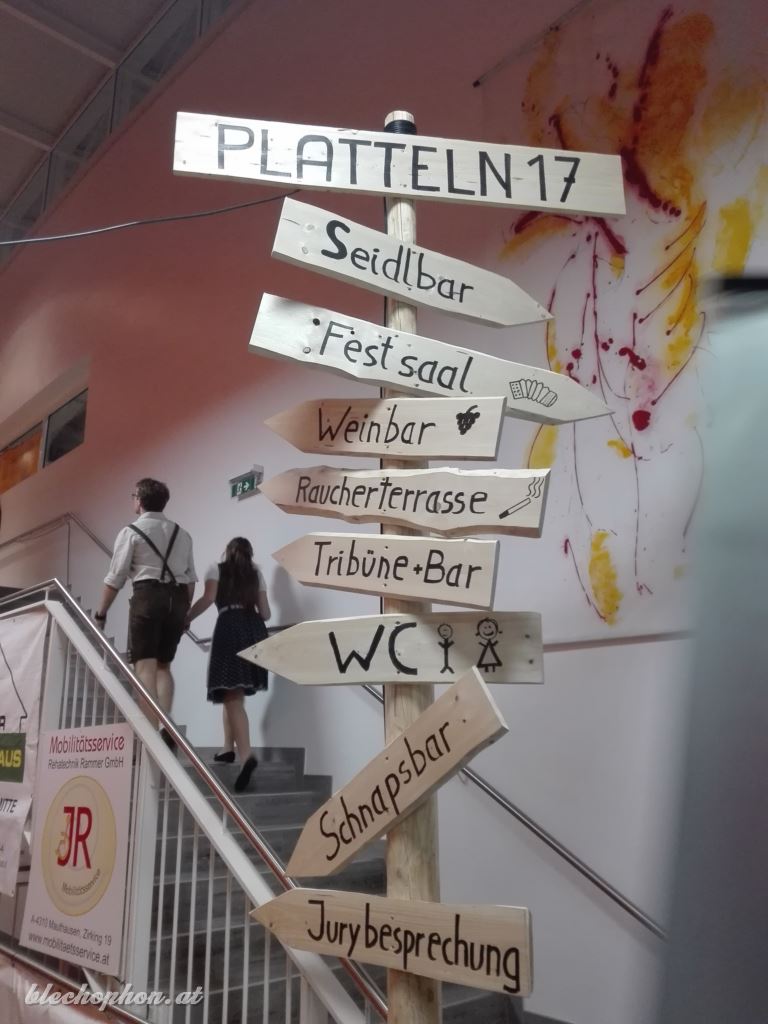 PLATTELN17
Seidlbar
Festsaal
Weinbar
Raucherterrasse
Tribüne+Bar
WC
Schnapsbar
Jurybesprechung
AUS
MITTE
Mobilitätsservice
Rehatechnik Rammer GmbH
JR
Mobilitätsservice
A-4310 Mauthausen, Zirking 19
www.mobilitaetsservice.at
blechophon.at